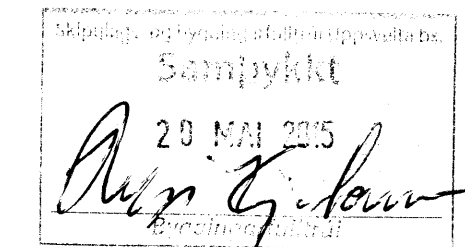 Skipulags- og byggingafulltrúi Uppsveita bs.
Samþykkt
20 MAI 2015
Byggingarfulltrúi